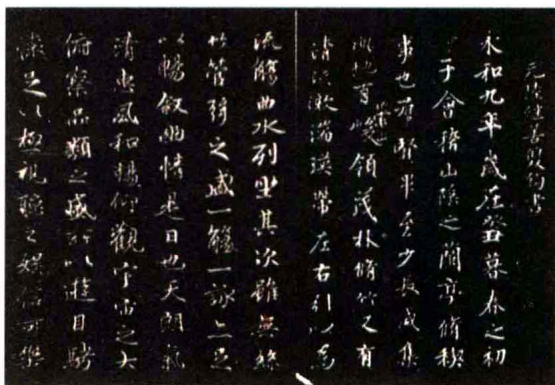 元陸繼善雙鉤書
永和九年歲在癸丑暮春之初
于會稽山陰之蘭亭脩禊
事也羣賢畢至少長咸集
此地有崇山峻領茂林脩竹又有
清流激湍暎帶左右引以為
流觴曲水列坐其次雖無絲
竹管弦之盛一觴一詠亦足
以暢叙幽情是日也天朗氣
清惠風和暢仰觀宇宙之大
俯察品類之盛所以遊目騁
懷足以極視聽之娛信可樂